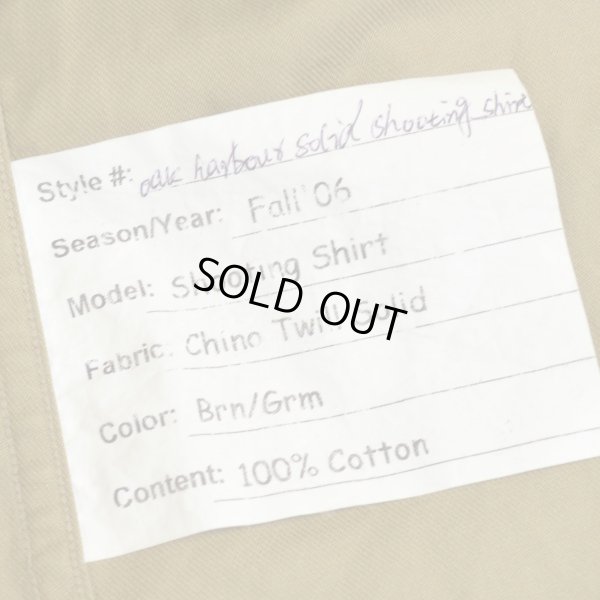 Style #: oak harbour solid shooting shirt
Season/Year: Fall '06
Model: Shooting Shirt
SOLD OUT
Fabric: Chino Twill Solid
Color: Brn/Grm
Content: 100% Cotton